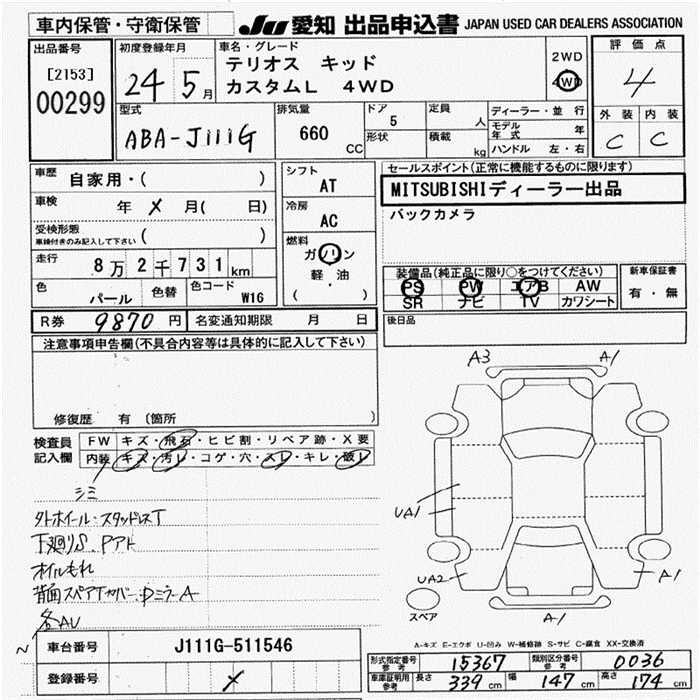 車内保管・守衛保管
JU 愛知 出品申込書 JAPAN USED CAR DEALERS ASSOCIATION
出品番号
[2153]
00299
初度登録年月
24 5月
車名・グレード
テリオス キッド
カスタムL 4WD
2WD
4WD
評価点
4
外装 内装
C C
型式
ABA-J111G
排気量
660
CC
ドア
5
形状
定員
人
積載
kg
ディーラー・並行
モデル年式 年
ハンドル 左・右
車歴 自家用・( )
車検 年 × 月( 日)
受検形態
車検付きのみ記入して下さい ( )
走行 8万2千731km
色 パール
色替
色コード W16
シフト
AT
冷房
AC
燃料
ガソリン
軽・油
( )
セールスポイント(正常に機能するものに限ります)
MITSUBISHIディーラー出品
バックカメラ
装備品(純正品に限り○をつけてください)
PS PW エアB AW
SR ナビ TV カワシート
新車保証書
有・無
後日品
R券 9870円 名変通知期限 月 日
注意事項申告欄(不具合内容等は具体的に記入して下さい)
修復歴 有 (箇所 )
検査員記入欄
FW キズ・飛石・ヒビ割・リペア跡・X要
内装 キズ・汚レ・コゲ・穴・スレ・キレ・破レ
シミ
外ホイール・スタッドレスT
下廻りS、Pアト
オイルもれ
背面スペアTカバー・DミラーA
各AU
A3 A1
UA1
UA2
A1
A1
スペア
A-キズ E-エクボ U-凹み W-補修跡 S-サビ C-腐食 XX-交換済
車台番号 J111G-511546
登録番号 ×
形式指定番号 参考 15367
類別区分番号 参考 0036
車庫証明用 参考 長さ 339cm 幅 147cm 高さ 174cm